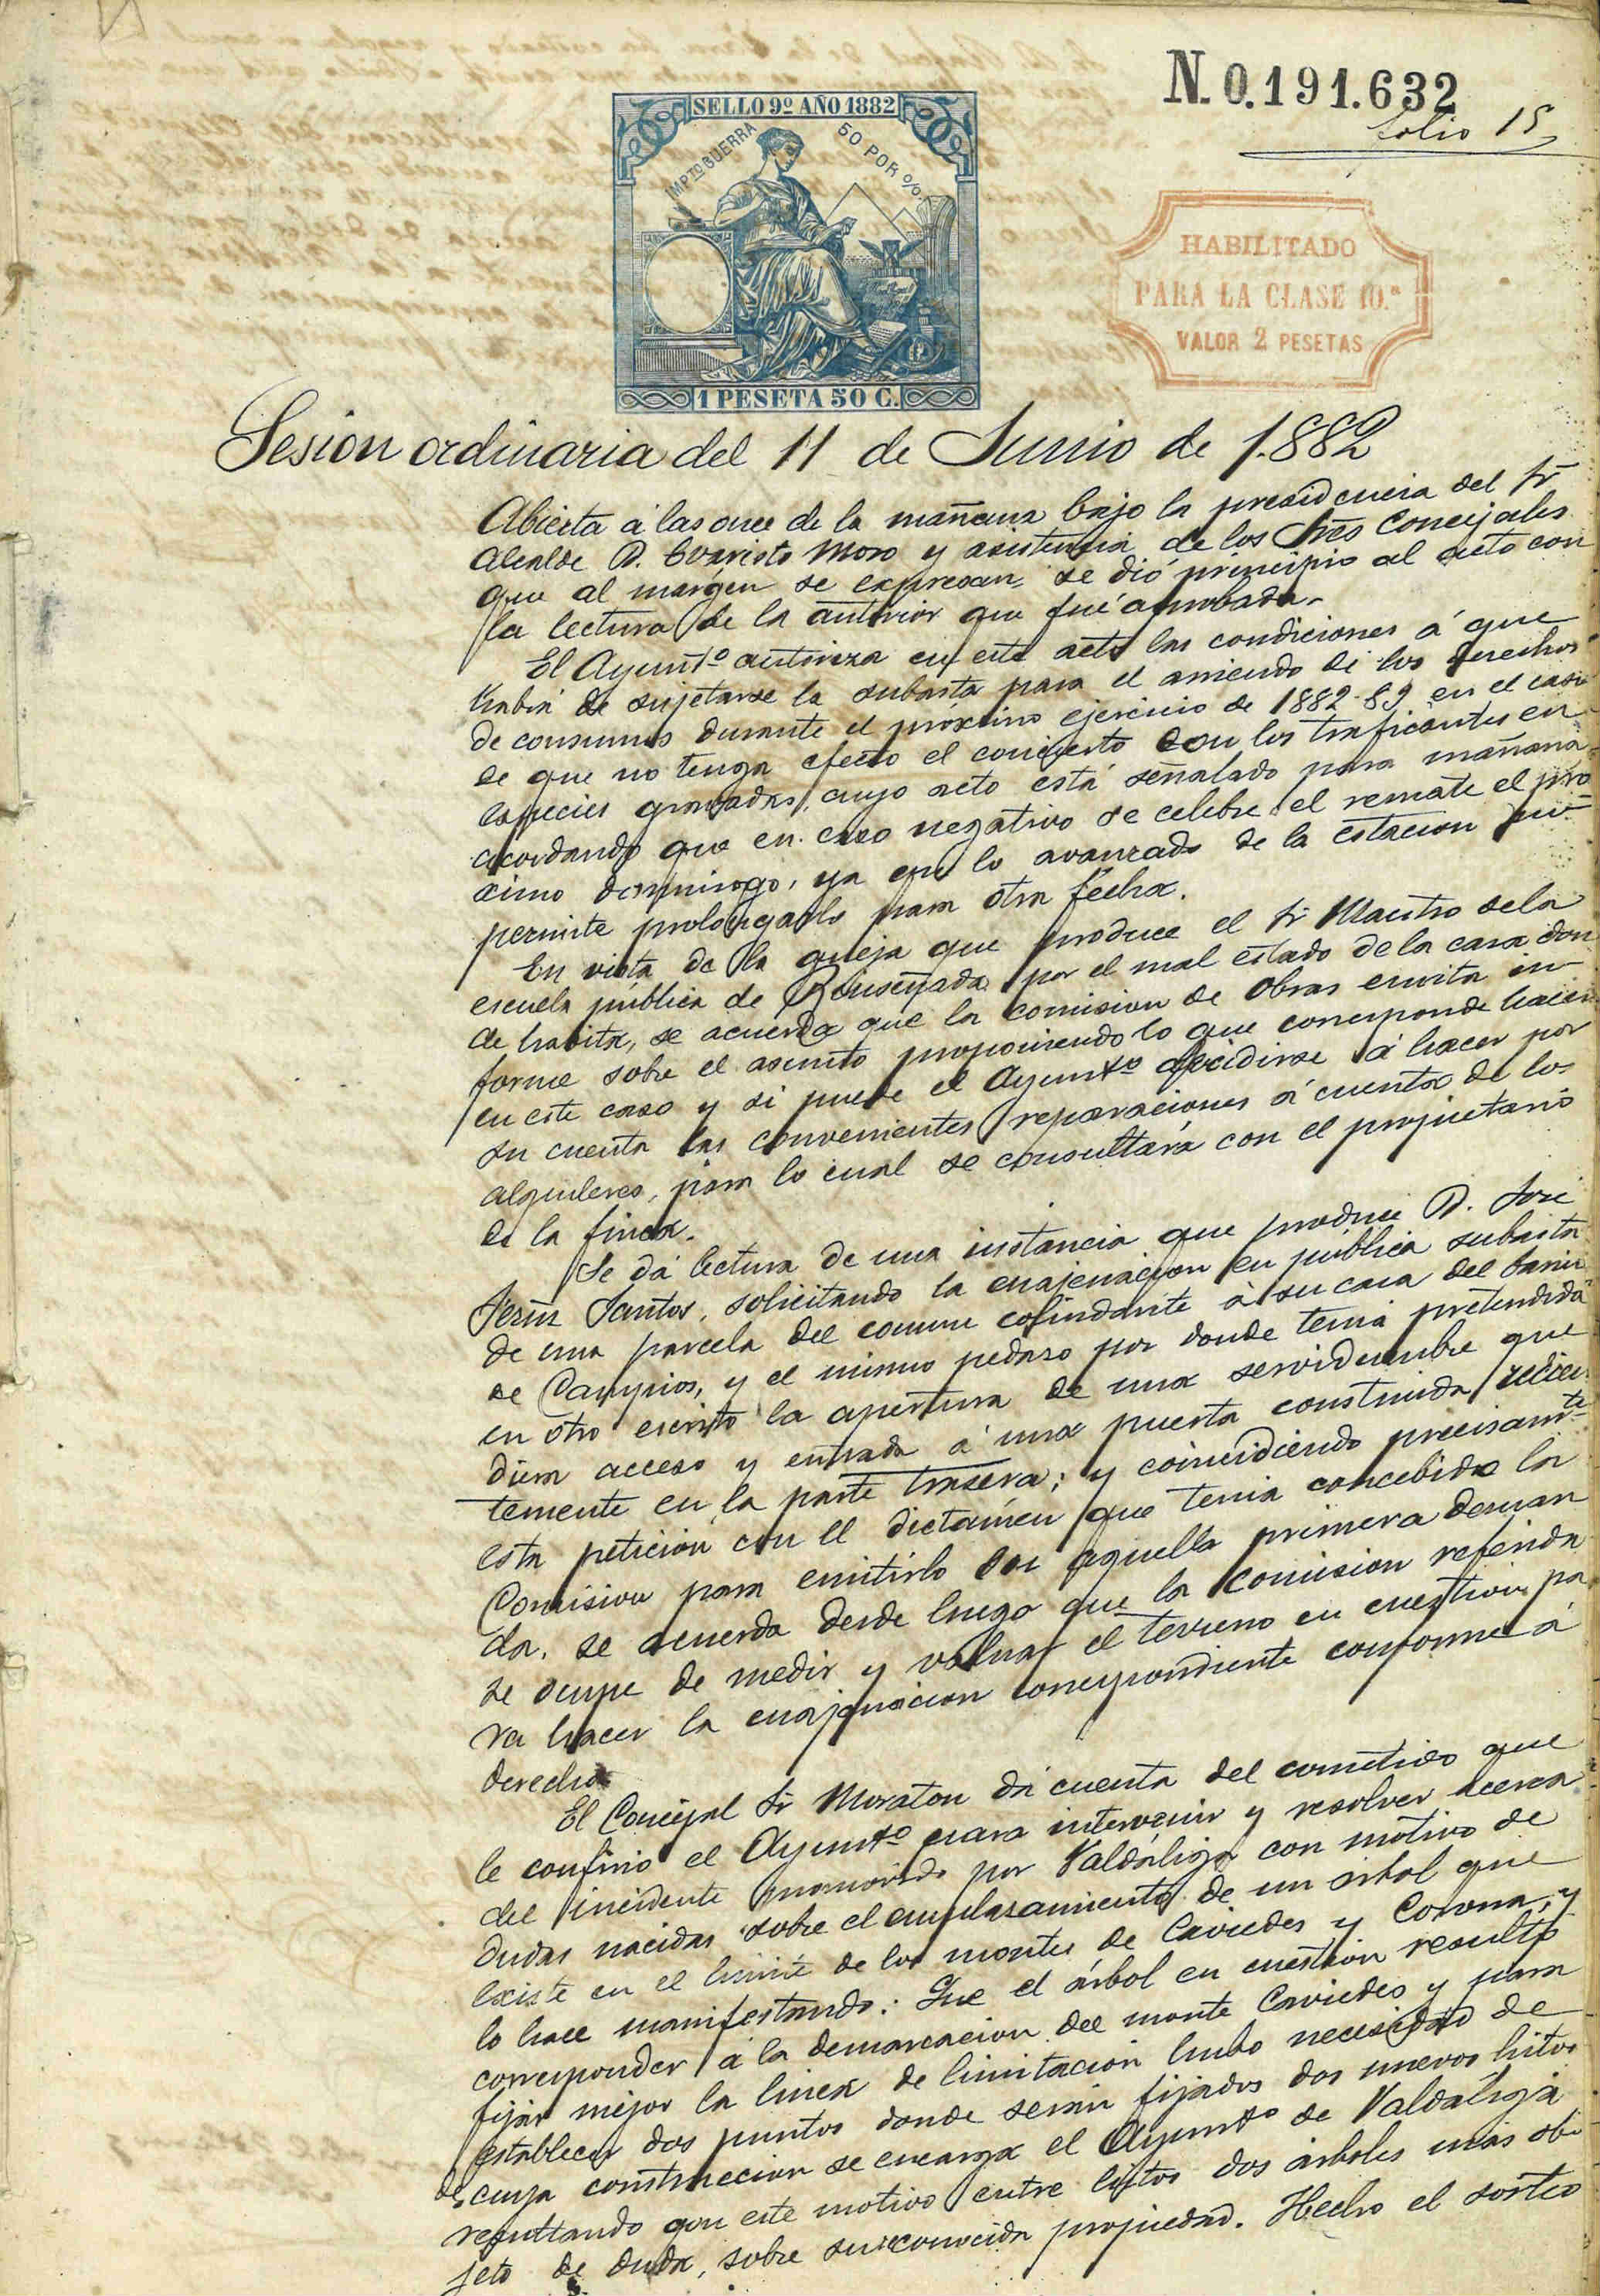 N. 0.191.632
folio 15
SELLO 9º AÑO 1882
IMPTO GUERRA 50 POR %.
1 PESETA 50 C.
HABILITADO
PARA LA CLASE 10.ª
VALOR 2 PESETAS
Sesion ordinaria del 11 de Junio de 1.882
Abierta á las once de la mañana bajo la presidencia del Sr
Alcalde D. Evaristo Moro y asistencia de los Sres Concejales
que al margen se expresan se dió principio al acto con
la lectura de la anterior que fué aprobada.
El Ayuntº autoriza en este acto las condiciones á que
habrá de sujetarse la subasta para el arriendo de los derechos
de consumos durante el próximo ejercicio de 1882-83 en el caso
de que no tenga efecto el concierto con los traficantes en
especies gravadas, cuyo acto está señalado para mañana
acordando que en caso negativo se celebre el remate el pro
ximo domingo, ya que lo avanzado de la estacion no
permite prolongarlo para otra fecha.
En vista de la queja que produce el Sr Maestro de la
escuela pública de por el mal estado de la casa don
de habita, se acuerda que la comision de Obras emita in-
forme sobre el asunto proponiendo lo que corresponde hacer
en este caso y si puede el Ayuntº decidirse á hacer por
su cuenta las convenientes reparaciones á cuenta de los
alquileres, para lo cual se consultará con el propietario
de la finca.
Se dá lectura de una instancia que produce D. José
Jesus Santos, solicitando la enajenacion en pública subasta
de una parcela del comun colindante á su casa del barrio
de Campios, y el mismo pedazo por donde tenia pretendida
en otro escrito la apertura de una servidumbre que
diera acceso y entrada á una puerta construida recien-
temente en la parte trasera; y coincidiendo precisamte
esta peticion con el dictámen que tenia concebido la
Comision para emitirlo en aquella primera deman
da, se acuerda desde luego que la Comision referida
se ocupe de medir y valuar el terreno en cuestion pa
ra hacer la enajenacion correspondiente conforme á
derecho.
El Concejal Sr Moraton dá cuenta del cometido que
le confirió el Ayuntº para intervenir y resolver acerca
del incidente promovido por Valdáliga con motivo de
dudas nacidas sobre el emplazamiento de un árbol que
existe en el limite de los montes de Caviedes y Corona, y
lo hace manifestando: Que el árbol en cuestion resultó
corresponder á la demarcacion del monte Caviedes y para
fijar mejor la linea de limitacion hubo necesidad de
establecer dos puntos donde serán fijados dos nuevos hitos
de cuya construccion se encarga el Ayuntº de Valdáliga
resultando por este motivo entre hitos dos árboles más ob-
jeto de duda, sobre su reconocida propiedad. Hecho el sorteo